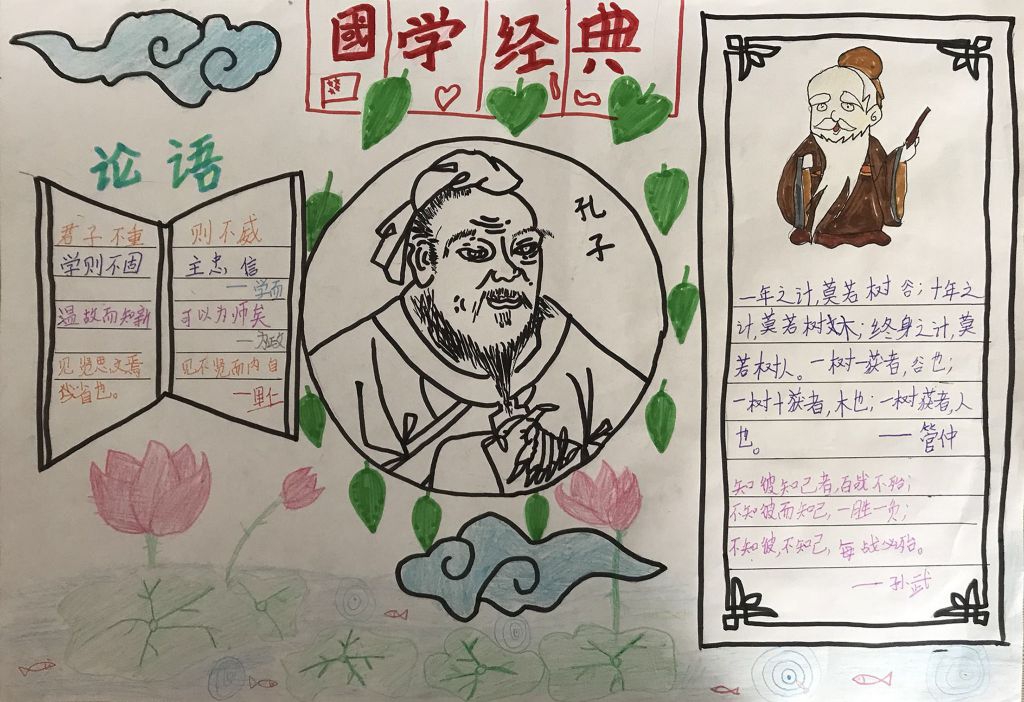 國学经典
论语
君子不重
学则不固
温故而知新
见贤思文焉
我省也。
则不威
主忠信
一学而
可以为师矣
一为政
见不贤而内自
一里仁
孔子
一年之计,莫若树谷;十年之
计,莫若树木;终身之计,莫
若树人。一树一获者,谷也;
一树十获者,木也;一树获者,人
也。 ——管仲
知彼知己者,百战不殆;
不知彼而知己,一胜一负;
不知彼,不知己,每战必殆。
——孙武